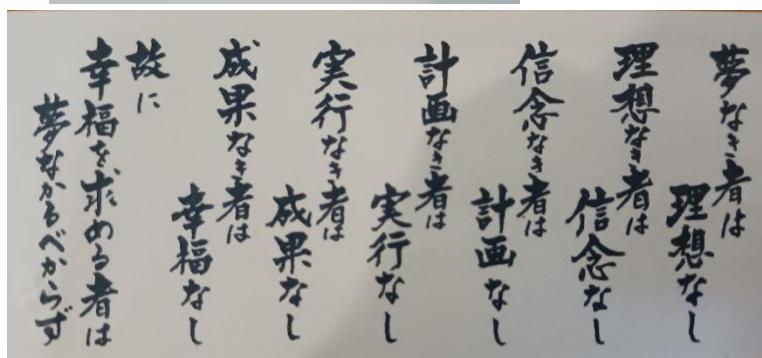 夢なき者は
理想なし
理想なき者は
信念なし
信念なき者は
計画なし
計画なき者は
実行なし
実行なき者は
成果なし
成果なき者は
幸福なし
故に
幸福を求める者は
夢なかるべからず